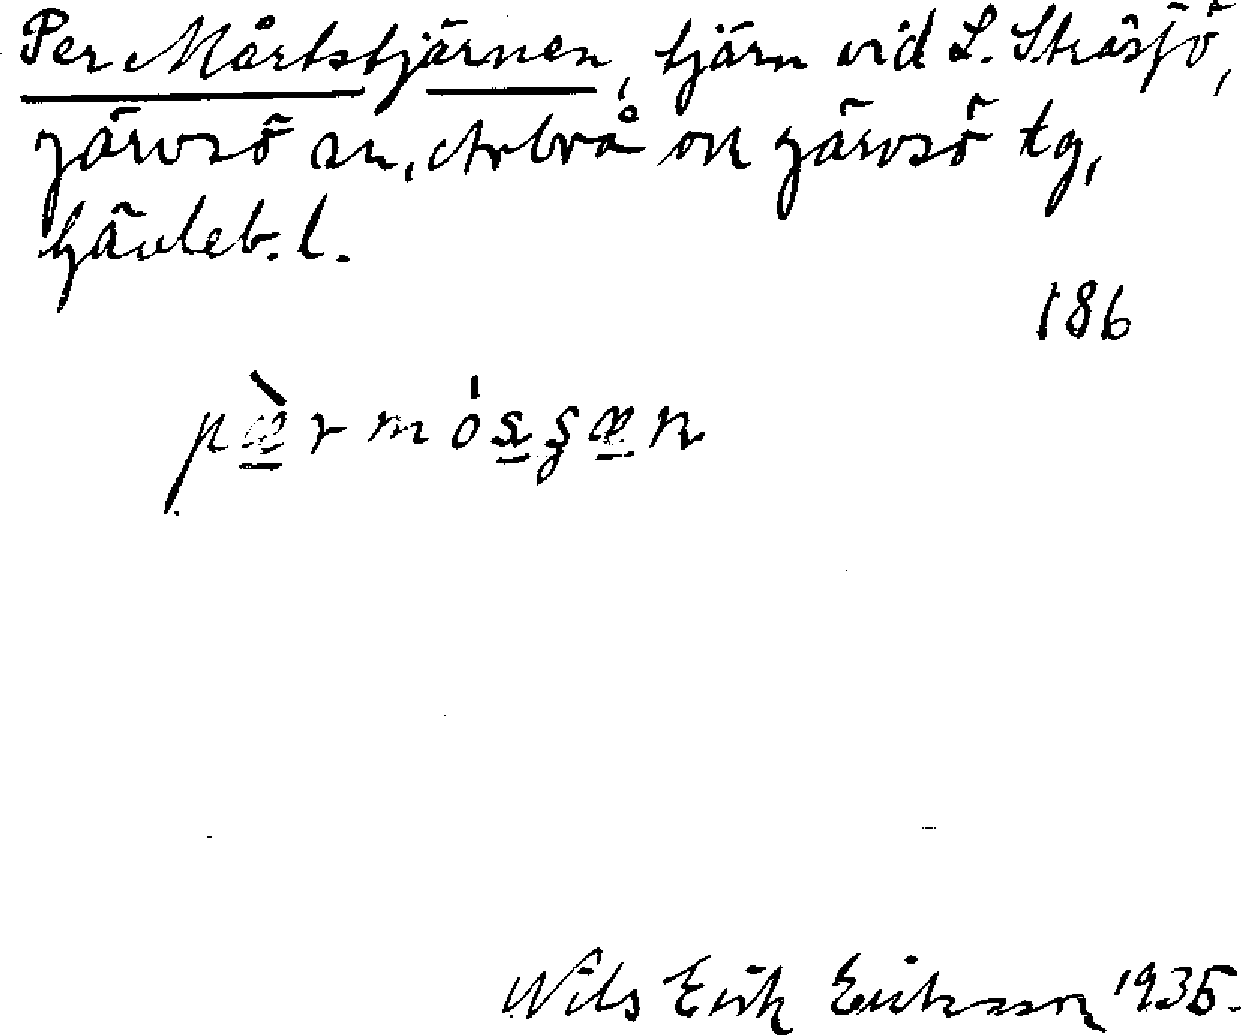 Per Mårtstjärnen, tjärn vid L. Stråsjö,
Järvsö sn, Arbrå ok Järvsö tg,
Gävleb. l.
186
pæ̀r mós̱şæn
Nils Erik Eriksson 1935.